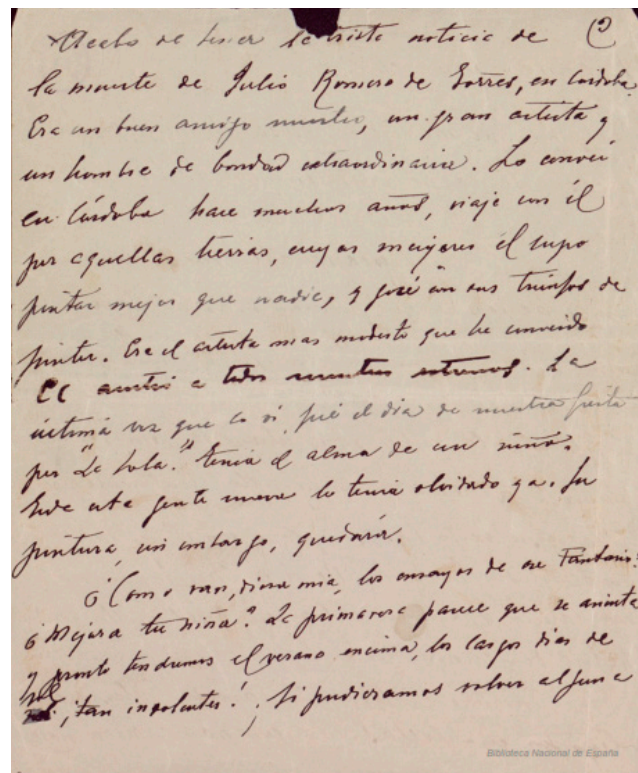 Acabo de tener la triste noticia de
la muerte de Julio Romero de Torres, en Cordoba.
Era un buen amigo nuestro, un gran artista y
un hombre de bondad extraordinaria. Lo conocí
en Córdoba hace muchos años, viaje con él
por aquellas tierras, cuyas mujeres él supo
pintar mejor que nadie, y gocé con sus triunfos de
pintor. Era el artista mas modesto que he conocido
El asistió a todos nuestros estrenos. La
ultima vez que lo ví, fué el dia de nuestra fiesta
por "La Lola." Tenia el alma de un niño.
Toda esta gente nueva lo tenia olvidado ya. Su
pintura, sin embargo, quedará.
¿Como van, diosa mia, los ensayos de ese Fantasma?
¿Mejora tu niña? La primavera parece que se anuncia
y pronto tendremos el verano encima, los largos dias de
sol, ¡tan insolentes! ¡Si pudieramos volver alguna
Biblioteca Nacional de España